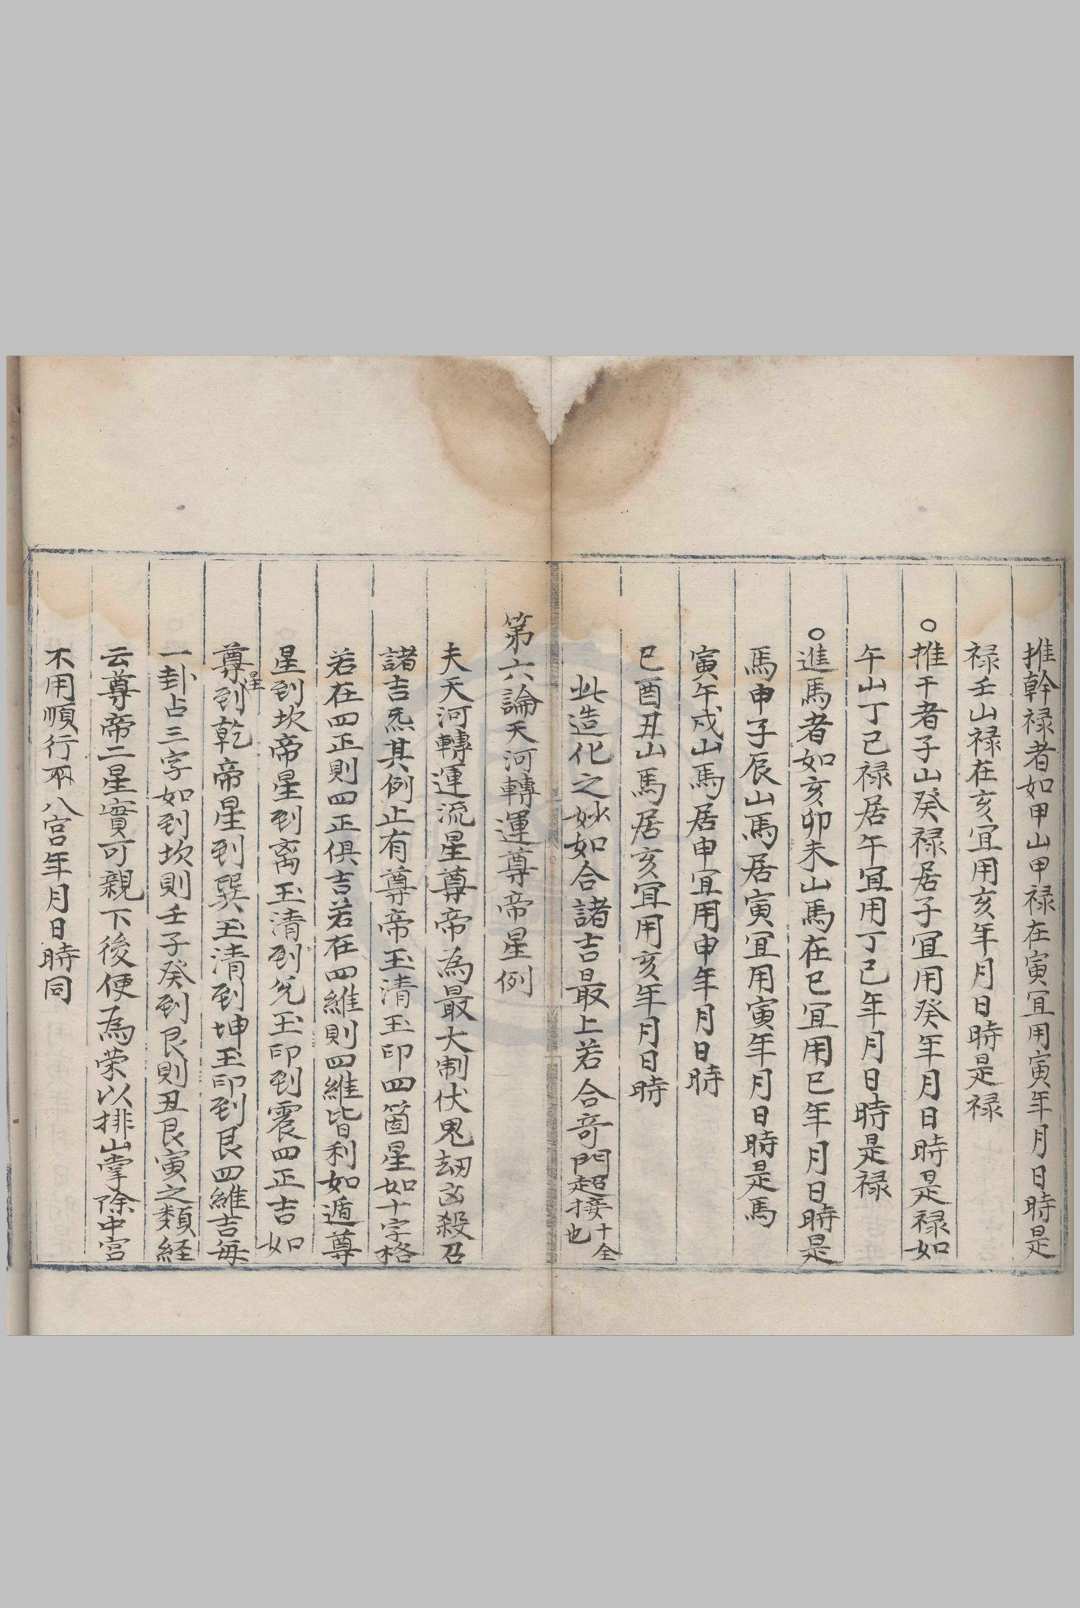 推幹禄者如甲山甲禄在寅宜用寅年月日時是
禄壬山禄在亥宜用亥年月日時是禄
○推干者子山癸禄居子宜用癸年月日時是禄如
午山丁己禄居午宜用丁己年月日時是禄
○進馬者如亥卯未山馬在巳宜用巳年月日時是
馬申子辰山馬居寅宜用寅年月日時是馬
寅午戌山馬居申宜用申年月日時
巳酉丑山馬居亥宜用亥年月日時
此造化之妙如合諸吉最上若合奇門超接十全也
第六論天河轉運尊帝星例
夫天河轉運流星尊帝為最大制伏鬼刼凶殺召
諸吉炁其例止有尊帝玉清玉印四箇星如十字格
若在四正則四正俱吉若在四維則四維皆利如遁尊
星到坎帝星到离玉清到兊玉印到震四正吉如
尊星到乾帝星到巽玉清到坤玉印到艮四維吉每
一卦占三字如到坎則壬子癸到艮則丑艮寅之類経
云尊帝二星實可親下後便為荣以排山掌除中宮
不用順行八宮年月日時同